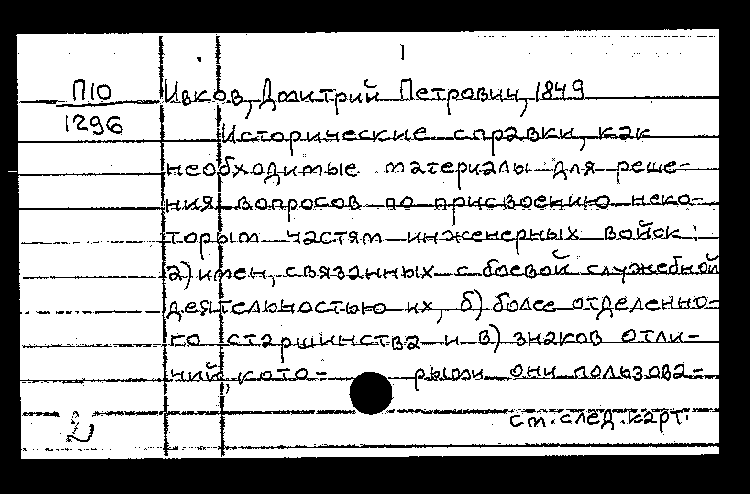 1
П10 Ивков, Дмитрий Петрович, 1849
1296 Исторические справки, как
необходимые материалы для реше-
ния вопросов по присвоению неко-
торым частям инженерных войск:
а) имен, связанных с боевой служебной
деятельностью их, б) более отделенно-
го старшинства и в) знаков отли-
ний, кото- рыми они пользова-
2 см. след. карт.